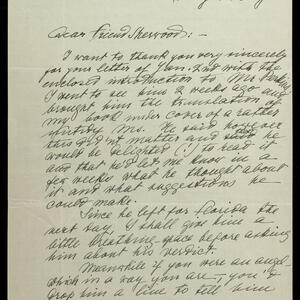 Dear Friend Sherwood: -
I want to thank you very sincerely
for your letter of Jan. 2nd with the
enclosed introduction to Mr.
I went to see him 2 weeks ago and
brought him the translation of
my book under cover of a rather
Ms. He said however
this did not matter and
would be delighted (!) to read it
and that he'd let me know in a
few weeks what he thought about
it and what suggestions he
could make.
Since he left for Florida the
next day I shall give him a
little breathing-space before asking
him about his verdict.
Meanwhile if you were an angel
which in a way you are -, you'd
drop him a line to tell him